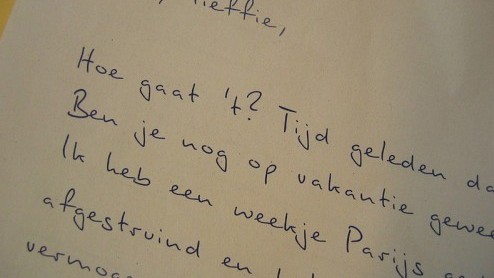 lieffie,
Hoe gaat 't? Tijd geleden da
Ben je nog op vakantie gewee
Ik heb een weekje Parijs
afgestruind en
vermog